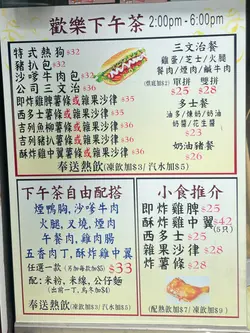 歡樂下午茶 2:00pm - 6:00pm
特式熱狗 $32
豬扒包 $32
沙嗲牛肉包 $33
公司三文治 $36
即炸雞脾薯條或雜果沙律 $35
西多士薯條或雜果沙律 $35
吉列魚柳薯條或雜果沙律 $36
吉列豬扒薯條或雜果沙律 $36
酥炸雞中翼薯條或雜果沙律 $46
奉送熱飲(凍飲加$3/汽水加$5)
三文治餐
雞蛋/芝士/火腿
餐肉/煙肉/鹹牛肉
單拼 雙拼
$25 $28
多士餐
油多/煉奶/奶油
奶醬/花生醬
$23
奶油豬餐
$26
下午茶自由配搭
煙鴨胸,沙嗲牛肉
火腿,叉燒,煙肉
午餐肉,雞肉腸
五香肉丁,酥炸雞中翼
任選一款 $33
配:米粉,米線,公仔麵
奉送熱飲(凍飲加$3)
小食推介
即炸雞脾 $25
酥炸雞中翼 $42
(5只)
西多士 $25
雜果沙律 $28
炸薯條 $28
(配熱飲加$7/凍飲加$9)